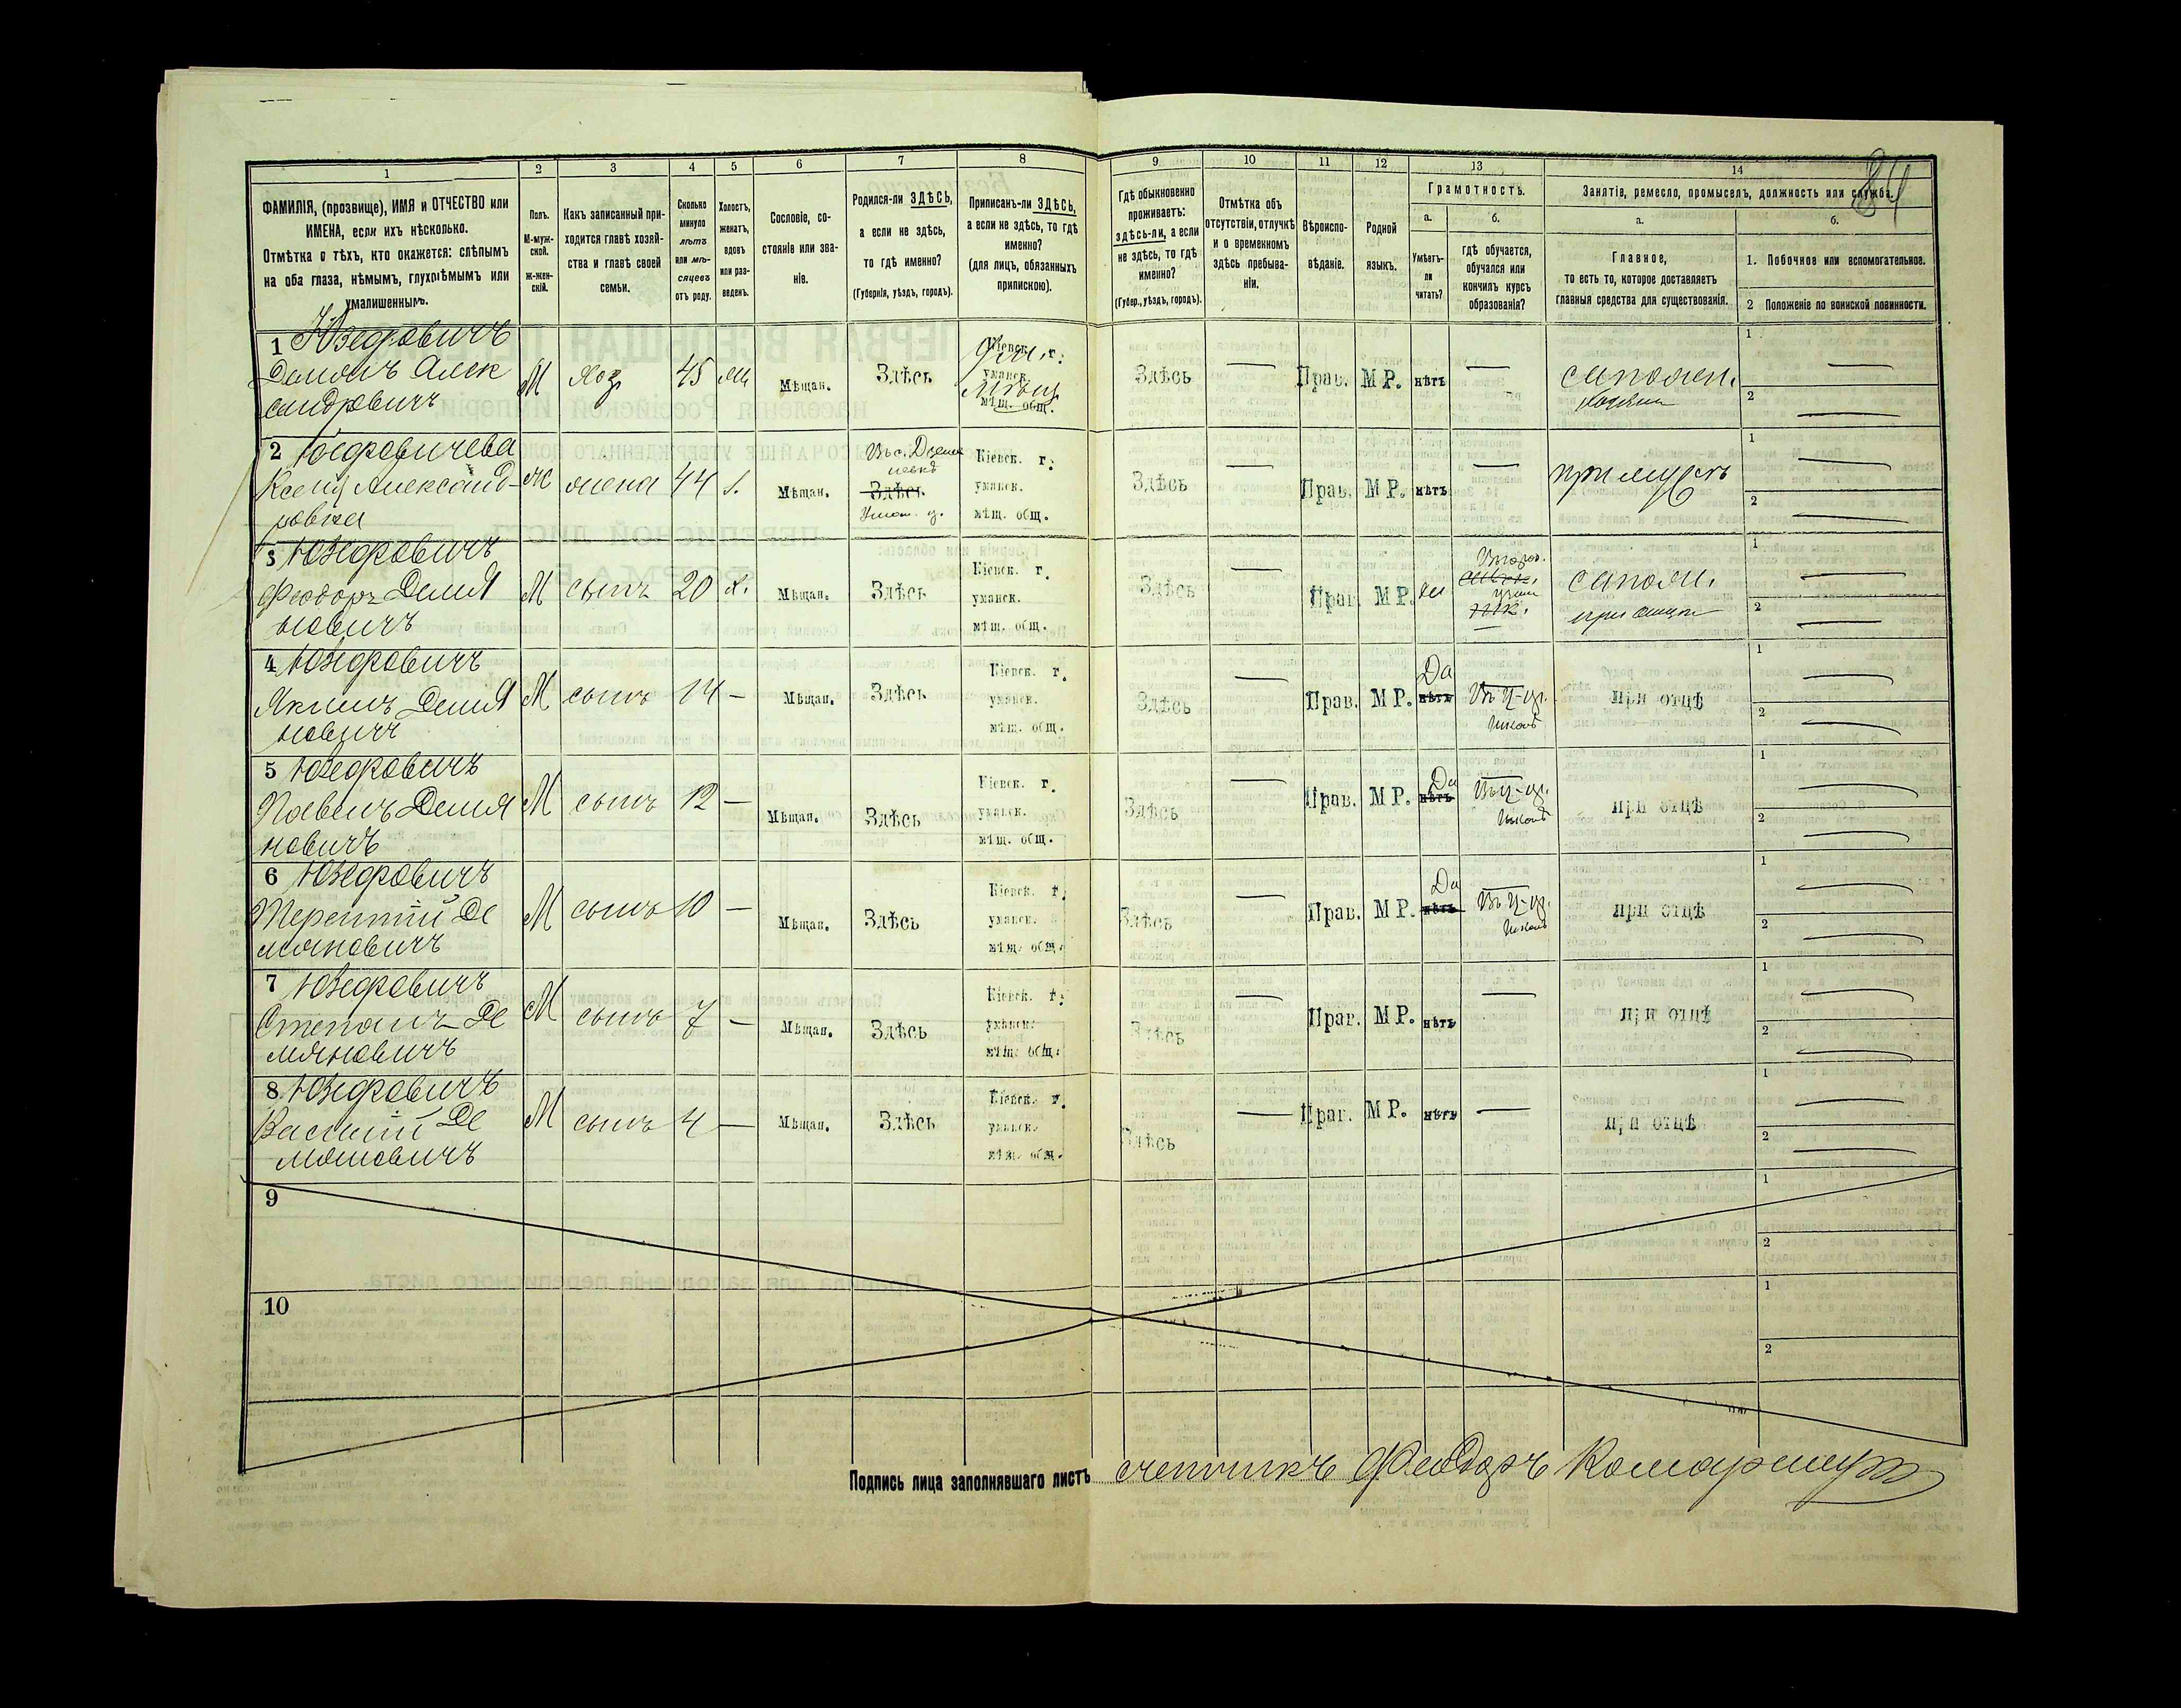 84
1 2 3 4 5 6 7 8 9 10 11 12 13 14
ФАМИЛІЯ, (прозвище), ИМЯ и ОТЧЕСТВО или
ИМЕНА, если ихъ нѣсколько.
Отмѣтка о тѣхъ, кто окажется: слѣпымъ
на оба глаза, нѣмымъ, глухонѣмымъ или
умалишеннымъ.
Полъ.
М-муж-
ской.
ж-жен-
скій.
Какъ записанный при-
ходится главѣ хозяй-
ства и главѣ своей
семьи.
Сколько
минуло
лѣтъ
или мѣ-
сяцевъ
отъ роду.
Холостъ,
женатъ,
вдовъ
или раз-
веденъ.
Сословіе, со-
стояніе или зва-
ніе.
Родился-ли ЗДѢСЬ,
а если не здѣсь,
то гдѣ именно?
(Губернія, уѣздъ, городъ).
Приписанъ-ли ЗДѢСЬ,
а если не здѣсь, то гдѣ
именно?
(для лицъ, обязанныхъ
припискою).
Гдѣ обыкновенно
проживаетъ:
здѣсь-ли, а если
не здѣсь, то гдѣ
именно?
(Губер., уѣздъ, городъ).
Отмѣтка объ
отсутствіи, отлучкѣ
и о временномъ
здѣсь пребыва-
ніи.
Вѣроиспо-
вѣданіе.
Родной
языкъ.
Грамотность.
а.
Умѣетъ-
ли
читать?
б.
гдѣ обучается,
обучался или
кончилъ курсъ
образованія?
Занятіе, ремесло, промыселъ, должность или служба.
а.
Главное,
то есть то, которое доставляетъ
главныя средства для существованія.
б.
1. Побочное или вспомогательное.
2 Положеніе по воинской повинности.
1 Юзефовичъ
Демьянъ Алек
сандровичъ
М хоз. 45 Мѣщан. Здѣсь
Кіевск. г.
уманск.
мѣщ. общ.
Здѣсь — Прав. М Р. нѣтъ — сапожн.
хозяинъ
1 —
2 —
2 Юзефовичева
Ксенія Александ-
ровна
ж жена 44 з. Мѣщан.
Здѣсь
Уман. у.
Кіевск. г.
уманск.
мѣщ. общ.
Здѣсь — Прав. М Р. нѣтъ — при мужѣ
1 —
2 —
3 Юзефовичъ
Феодоръ Демья
новичъ
М сынъ 20 х. Мѣщан. Здѣсь
Кіевск. г.
уманск.
мѣщ. общ.
Здѣсь — Прав. М Р. да
сапожн.
при отцѣ
1 —
2 —
4 Юзефовичъ
Якимъ Демья
новичъ
М сынъ 14 — Мѣщан. Здѣсь
Кіевск. г.
уманск.
мѣщ. общ.
Здѣсь — Прав. М Р. Да
нѣтъ
Въ ц-пр.
школѣ
при отцѣ
1 —
2 —
5 Юзефовичъ
Павелъ Демья
новичъ
М сынъ 12 — Мѣщан. Здѣсь
Кіевск. г.
уманск.
мѣщ. общ.
Здѣсь — Прав. М Р. Да
нѣтъ
Въ ц-пр.
школѣ
при отцѣ
1 —
2 —
6 Юзефовичъ
Терентій Де
мяновичъ
М сынъ 10 — Мѣщан. Здѣсь
Кіевск. г.
уманск.
мѣщ. общ.
Здѣсь — Прав. М Р. Да
нѣтъ
Въ ц-пр.
школѣ
при отцѣ
1 —
2 —
7 Юзефовичъ
Степанъ Де
мяновичъ
М сынъ 7 — Мѣщан. Здѣсь
Кіевск. г.
уманск.
мѣщ. общ.
Здѣсь — Прав. М Р. нѣтъ — при отцѣ
1 —
2 —
8 Юзефовичъ
Василій Де
мяновичъ
М сынъ 4 — Мѣщан. Здѣсь
Кіевск. г.
уманск.
мѣщ. общ.
Здѣсь — Прав. М Р. нѣтъ — при отцѣ
1 —
2 —
9
1
2
10
1
2
Подпись лица заполнявшаго листъ счетчикъ Феодоръ